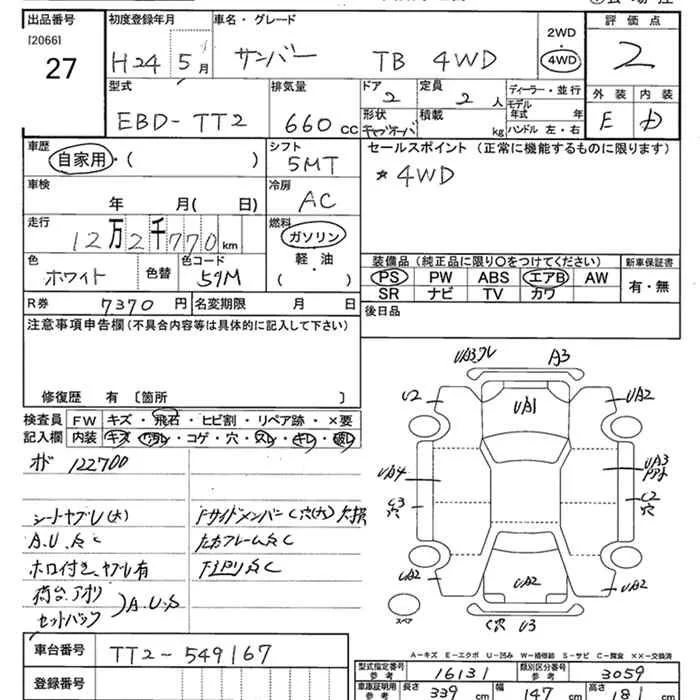 出品番号 初度登録年月 車名・グレード 評価点
[2066]
27 H24 5月 サンバー TB 4WD 2WD 4WD 2
型式 排気量 ドア 定員 ディーラー・並行 外装 内装
EBD-TT2 660cc 2 2人 モデル年式 年 E D
形状 積載 kg ハンドル 左・右
キャブオーバ
車歴 シフト セールスポイント (正常に機能するものに限ります)
自家用・( ) 5MT *4WD
車検 冷房
年 月( 日) AC
走行 燃料
12万2千770km ガソリン
軽・油
( )
色 色替 色コード
ホワイト 59M
装備品 (純正品に限り○をつけてください) 新車保証書
PS PW ABS エアB AW 有・無
SR ナビ TV カワ
R券 7370円 名変期限 月 日
後日品
注意事項申告欄 (不具合内容等は具体的に記入して下さい)
修復歴 有 〔箇所 〕
検査員 FW キズ・飛石・ヒビ割・リペア跡・×要
記入欄 内装 キズ・汚レ・コゲ・穴・スレ・キレ・破レ
122700
シートヤブレ(大)
A.U.S.C
ホロ付き、ヤブレ有
荷台、アオリ
セットバック
A.U.S
FサイドメンバーC穴(大)欠損
UA3ワレ A3
U2 UA1 UA2
UA4 UA3
C3 穴 C2 穴
UA2 UA2 UA2
スペア C穴 U3
A-キズ E-エクボ U-凹み W-補修跡 S-サビ C-腐食 ××-交換済
車台番号 TT2-549167
登録番号
型式指定番号 参考 16131 類別区分番号 参考 3059
車庫証明用 参考 長さ 339cm 幅 147cm 高さ 181cm